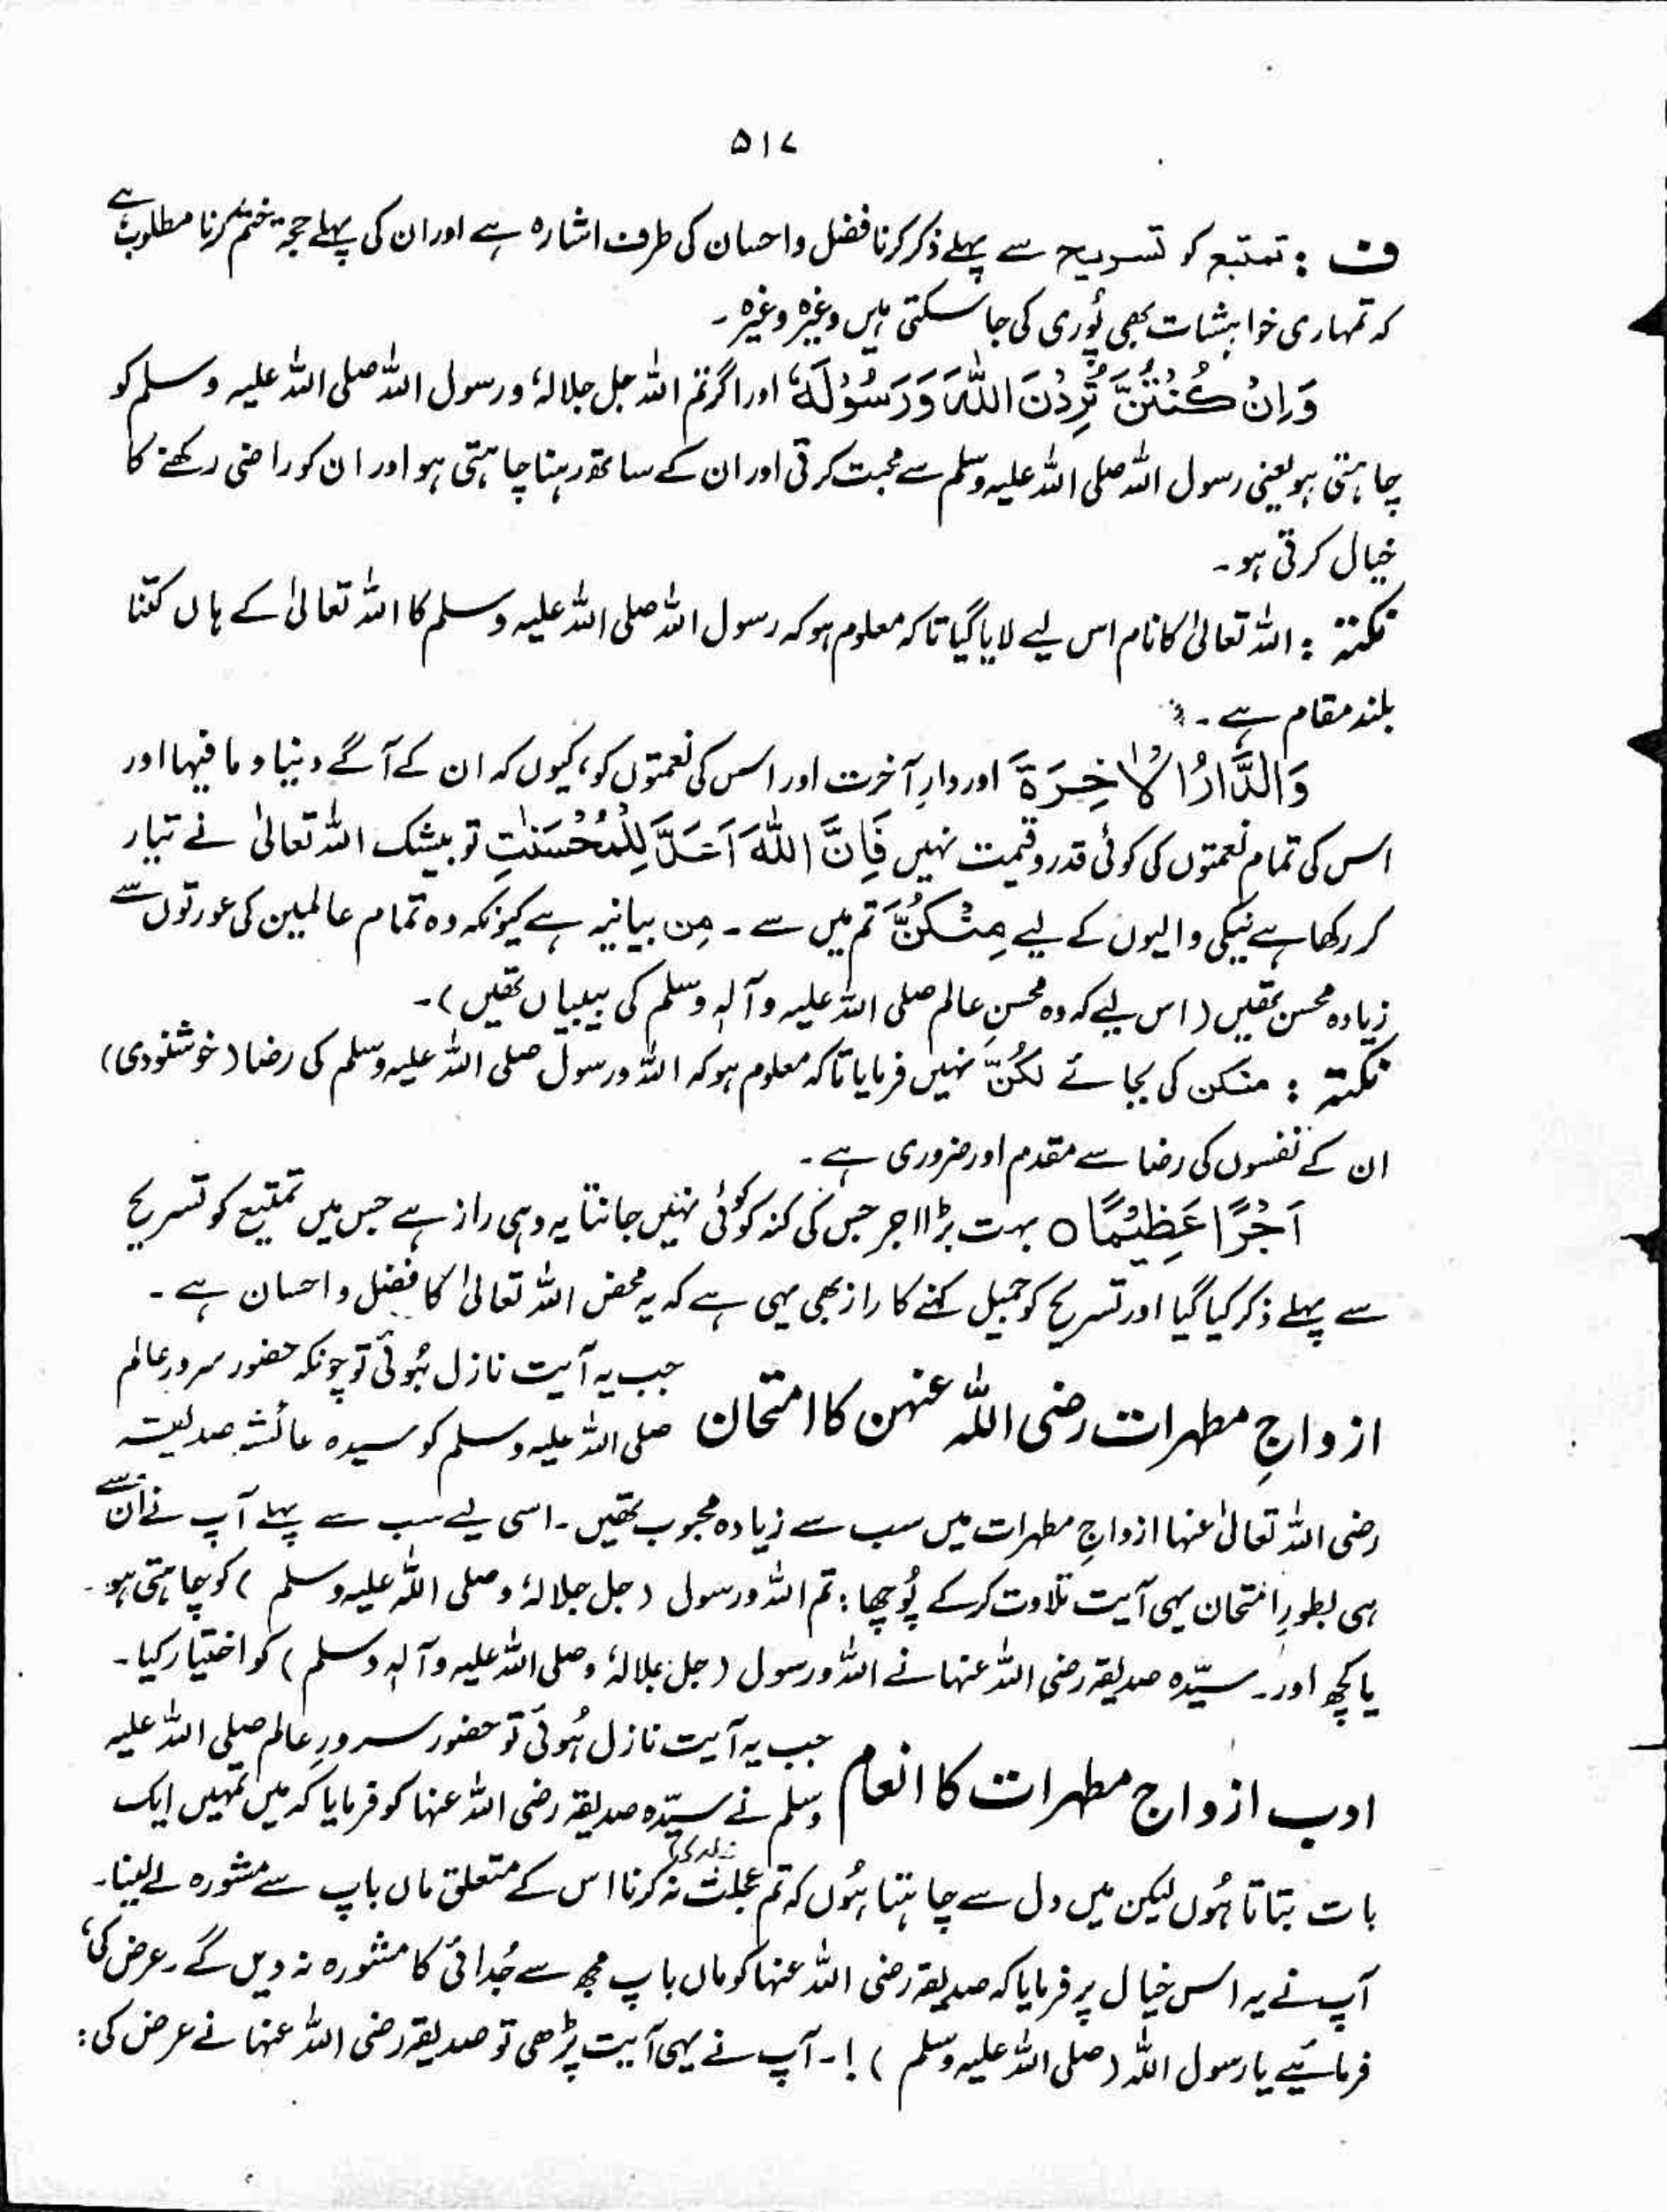 ۵۱۷
ف : تمتیع کو تسریح سے پہلے ذکر کرنا فضل و احسان کی طرف اشارہ ہے اور ان کی پہلے حجۃ ختم کرنا مطلوب ہے
کہ تمہاری خواہشات بھی پُوری کی جا سکتی ہیں وغیرہ وغیرہ۔
وَاِنْ كُنْتُنَّ تُرِدْنَ اللّٰهَ وَرَسُوْلَهٗ اور اگر تم اللہ جل جلالہٗ و رسول اللہ صلی اللہ علیہ وسلم کو
چاہتی ہو یعنی رسول اللہ صلی اللہ علیہ وسلم سے محبت کرتی اور ان کے ساتھ رہنا چاہتی ہو اور ان کو راضی رکھنے کا
خیال کرتی ہو۔
نکتہ : اللہ تعالیٰ کا نام اس لیے لایا گیا تاکہ معلوم ہو کہ رسول اللہ صلی اللہ علیہ وسلم کا اللہ تعالیٰ کے ہاں کتنا
بلند مقام ہے۔
وَالدَّارَ الْاٰخِرَةَ اور دارِ آخرت اور اس کی نعمتوں کو، کیوں کہ ان کے آگے دنیا و ما فیہا اور
اس کی تمام نعمتوں کی کوئی قدر و قیمت نہیں فَاِنَّ اللّٰهَ اَعَدَّ لِلْمُحْسِنٰتِ تو بیشک اللہ تعالیٰ نے تیار
کر رکھا ہے نیکی والیوں کے لیے مِنْكُنَّ تم میں سے۔ مِن بیانیہ ہے کیونکہ وہ تمام عالمین کی عورتوں سے
زیادہ محسن تھیں (اس لیے کہ وہ محسنِ عالم صلی اللہ علیہ وآلہٖ وسلم کی بیبیاں تھیں)۔
نکتہ : منکن کی بجائے لکُنّ نہیں فرمایا تاکہ معلوم ہو کہ اللہ و رسول صلی اللہ علیہ وسلم کی رضا (خوشنودی)
ان کے نفسوں کی رضا سے مقدم اور ضروری ہے۔
اَجْرًا عَظِيْمًا ○ بہت بڑا اجر جس کی کنہ کو کوئی نہیں جانتا یہ وہی راز ہے جس میں تمتیع کو تسریح
سے پہلے ذکر کیا گیا اور تسریح کو جمیل کہنے کا راز بھی یہی ہے کہ یہ محض اللہ تعالیٰ کا فضل و احسان ہے۔
ازواجِ مطہرات رضی اللہ عنہن کا امتحان جب یہ آیت نازل ہُوئی تو چونکہ حضور سرورِ عالم
صلی اللہ علیہ وسلم کو سیدہ عائشہ صدیقہ
رضی اللہ تعالیٰ عنہا ازواجِ مطہرات میں سب سے زیادہ محبوب تھیں۔ اسی لیے سب سے پہلے آپ نے ان سے
ہی بطورِ امتحان یہی آیت تلاوت کر کے پُوچھا : تم اللہ و رسول (جل جلالہٗ و صلی اللہ علیہ وسلم) کو چاہتی ہو۔
یا کچھ اور۔ سیّدہ صدیقہ رضی اللہ عنہا نے اللہ و رسول (جل جلالہٗ و صلی اللہ علیہ وآلہٖ وسلم) کو اختیار کیا۔
ادب ازواج مطہرات کا انعام جب یہ آیت نازل ہُوئی تو حضور سرورِ عالم صلی اللہ علیہ
وسلم نے سیّدہ صدیقہ رضی اللہ عنہا کو فرمایا کہ میں تمہیں ایک
بات بتاتا ہُوں لیکن میں دل سے چاہتا ہُوں کہ تم عجلت نہ کرنا اس کے متعلق ماں باپ سے مشورہ لے لینا۔
آپ نے یہ اس خیال پر فرمایا کہ صدیقہ رضی اللہ عنہا کو ماں باپ مجھ سے جُدائی کا مشورہ نہ دیں گے۔ عرض کی،
فرمائیے یا رسول اللہ (صلی اللہ علیہ وسلم)! ۔ آپ نے یہی آیت پڑھی تو صدیقہ رضی اللہ عنہا نے عرض کی :